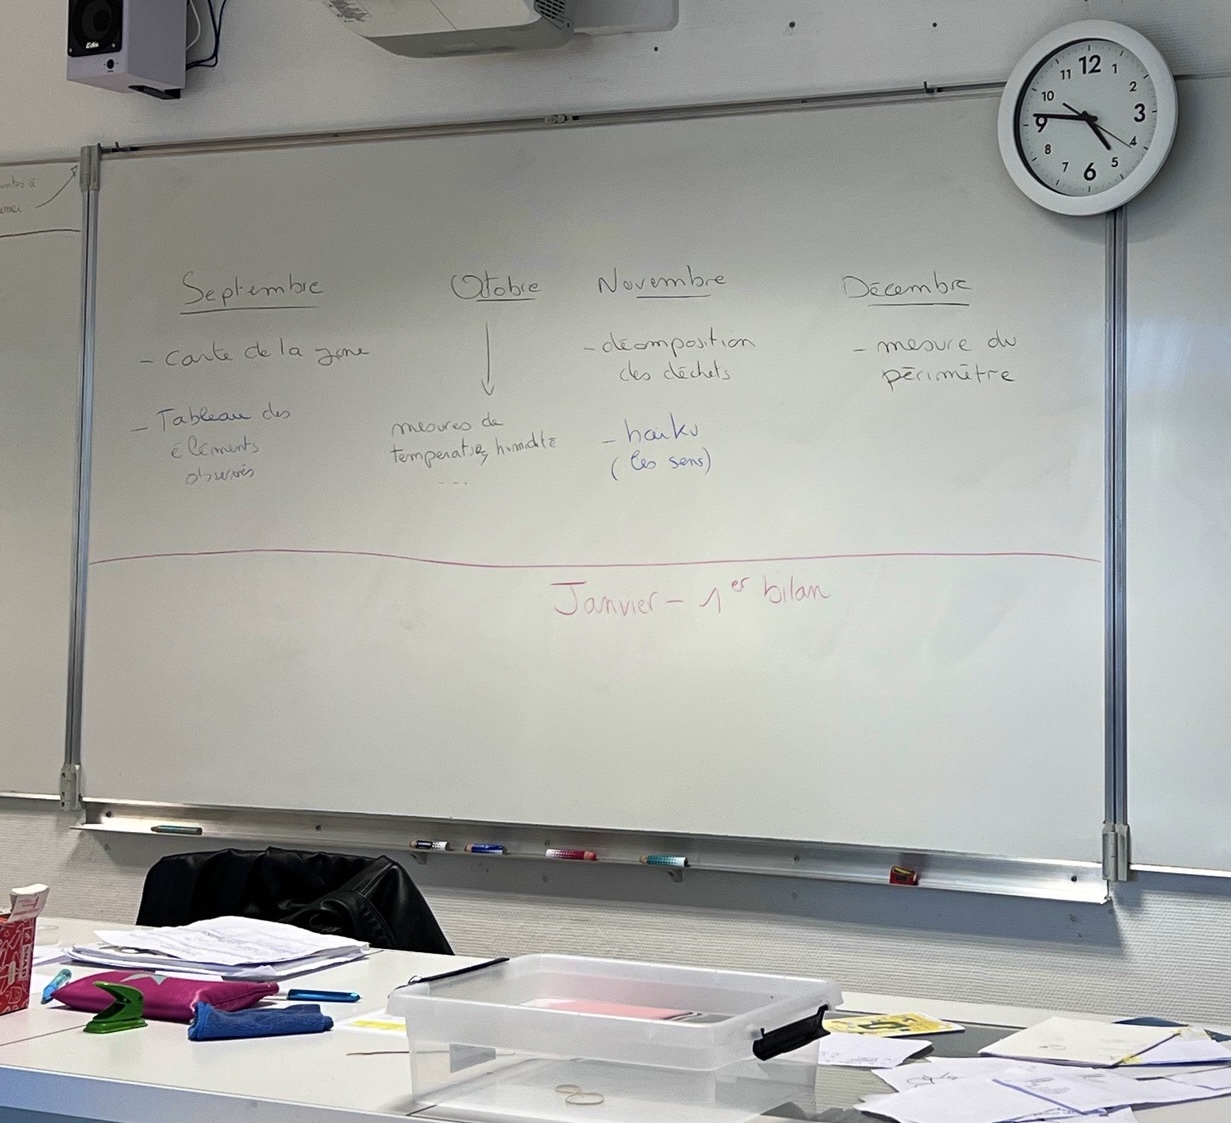 Septembre
- Carte de la zone
- Tableau des
éléments
observés
Octobre
mesures de
températures, humidité
...
Novembre
- décomposition
des déchets
- haiku
(les sens)
Décembre
- mesure du
périmètre
Janvier - 1er bilan
12
1
2
3
4
5
6
7
8
9
10
11